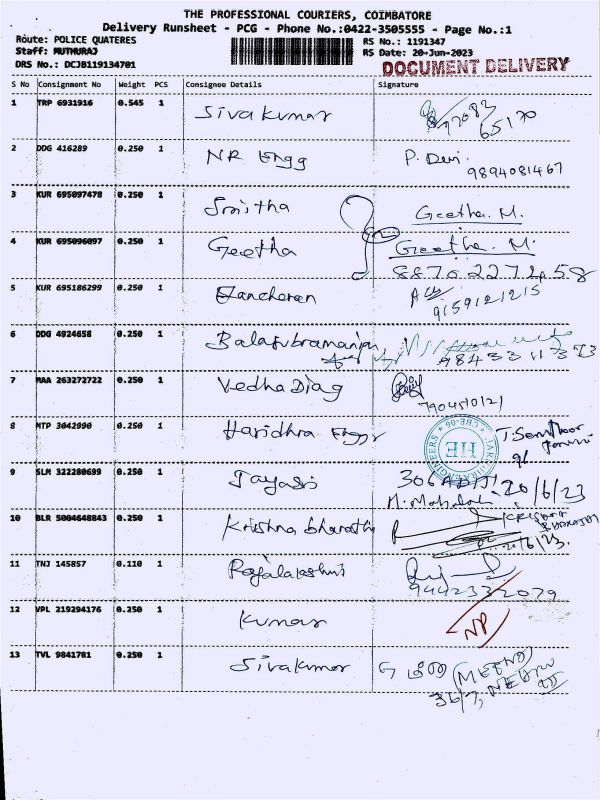 THE PROFESSIONAL COURIERS, COIMBATORE
Delivery Runsheet - PCG - Phone No.:0422-3505555 - Page No.:1
Route: POLICE QUATERES
RS No.: 1191347
Staff: MUTHURAJ
RS Date: 20-Jun-2023
DRS No.: DCJB119134701
DOCUMENT DELIVERY
S No Consignment No Weight PCS Consignee Details Signature
1 TRP 6931916 0.545 1 Sivakumar 97083 65170
2 DDG 416289 0.250 1 NR Engg P. Devi
9894081467
3 KUR 695097478 0.250 1 Smitha Geetha. M.
4 KUR 695096097 0.250 1 Geetha Geetha. M.
8870227458
5 KUR 695186299 0.250 1
9159121215
6 DDG 4924658 0.250 1 Balasubramanian
7 MAA 263272722 0.250 1 Vedha Diag
8 MTP 3042990 0.250 1 Haridhra Engg
HE
9 SLM 322280699 0.250 1 Jayasri 20/6/23
10 BLR 5004648843 0.250 1 Krishna bharathi
11 TNJ 145857 0.110 1 Rajalakshmi
9442332079
12 VPL 219294176 0.250 1 Kumar NP
13 TVL 9841781 0.250 1 Sivakumar (MEENA)
36/7, NEHRU